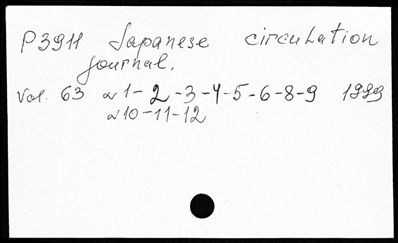 P3911 Japanese circulation
journal.
Vol. 63 N1-2-3-4-5-6-8-9 1999
N10-11-12